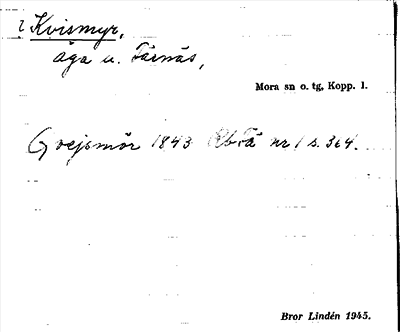 Kvismyr,
äga u. Färnäs,
Mora sn o. tg, Kopp. l.
Qvejsmör 1843 nr 1 s. 364.
Bror Lindén 1945.